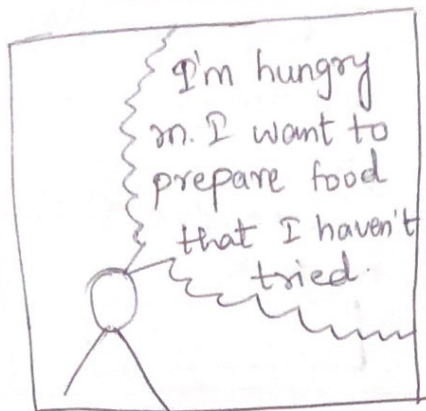 I'm hungry
m. I want to
prepare food
that I haven't
tried.